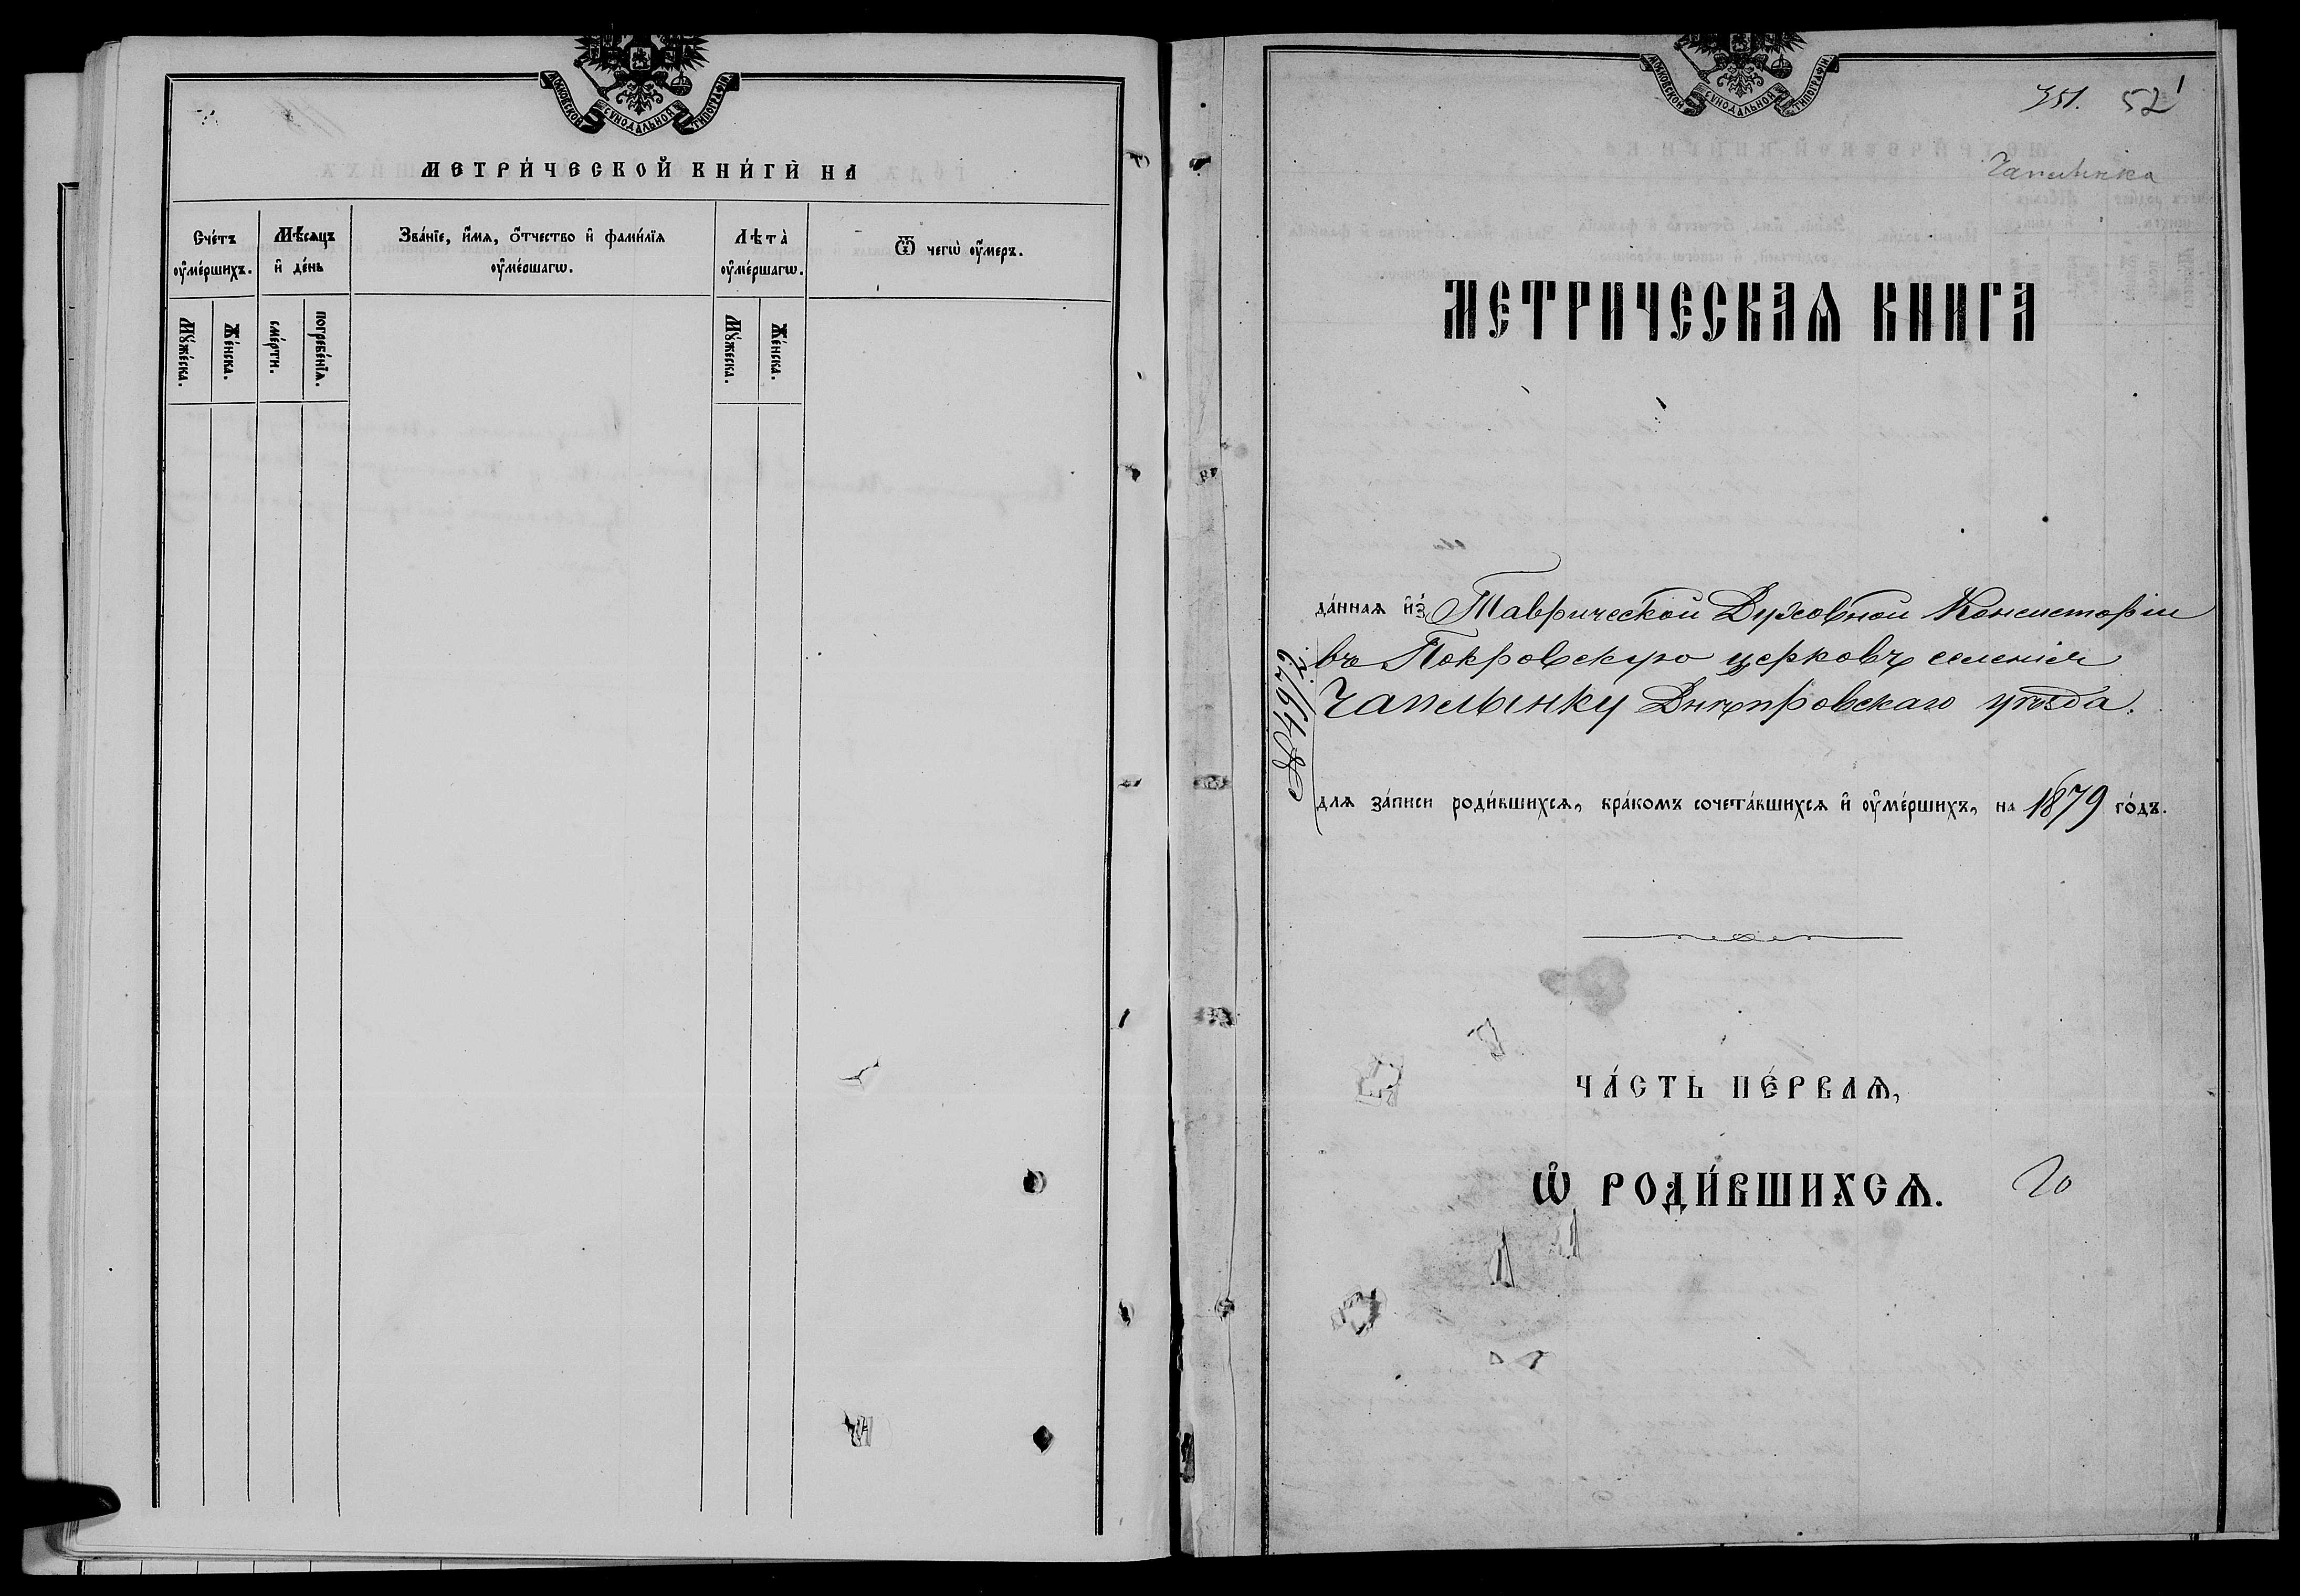 МОСКОВСКОЙ СѴНОДАЛЬНОЙ ТИПОГРАФІИ
МЕТРИ́ЧЕСКОЙ КНИ́ГИ НА
Сче́тъ ᲂу҆ме́ршихъ.
Мѣ́сяцъ и҆ де́нь
Зва́нїе, и҆́мя, ѻ҆́тчество и҆ фами́лїя
ᲂу҆ме́ршагѡ.
Лѣта̀ ᲂу҆ме́ршагѡ.
Ѿ чегѡ̀ ᲂу҆́меръ.
Мꙋ́жеска.
Же́нска.
сме́рти.
погребе́нїѧ.
Мꙋ́жеска.
Же́нска.
МОСКОВСКОЙ СѴНОДАЛЬНОЙ ТИПОГРАФІИ
351. 52 1
Чаплынка
МЕТРИЧЕСКАѦ КНИГА
да́ннаѧ и҆з̾ Таврической Духовной Консисторіи
въ Покровскую церковь селенія
Чаплынку Днѣпровскаго уѣзда.
длѧ за́писи роди́вшихсѧ, бра́комъ сочета́вшихсѧ и҆ ᲂу҆ме́ршихъ, на 1879 го́дъ.
ЧА́СТЬ ПЕ́РВАѦ,
Ѡ҆ РОДИ́ВШИХСѦ.